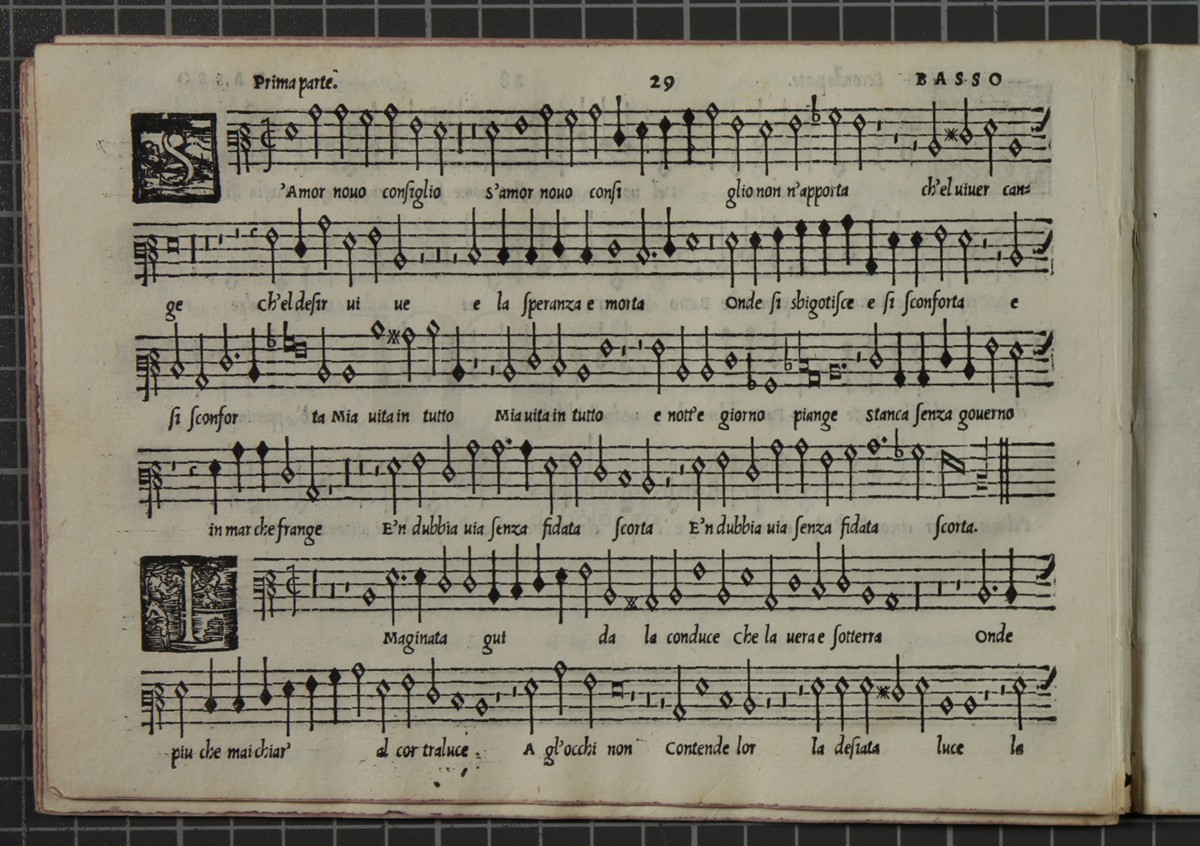 Prima parte. 29 BASSO
S 'Amor nouo consiglio S'amor nouo consi glio non n'apporta ch'el uiuer can=
ge ch'el desir ui ue e la speranza e morta Onde si sbigotisce e si sconforta e
si sconfor ta Mia uita in tutto Mia uita in tutto e nott'e giorno piange Stanca senza gouerno
in mar che frange E'n dubbia uia senza fidata scorta E'n dubbia uia senza fidata scorta.
I Maginata gui da la conduce Che la uera e sotterra Onde
piu che mai chiar' al cor traluce A gl'occhi non Contende lor la desiata luce la